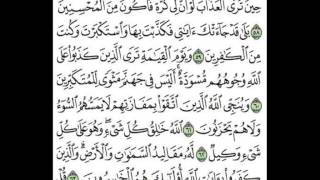 حِينَ تَرَى ٱلْعَذَابَ لَوْ أَنَّ لِى كَرَّةً فَأَكُونَ مِنَ ٱلْمُحْسِنِينَ
٥٨ بَلَىٰ قَدْ جَآءَتْكَ ءَايَٰتِى فَكَذَّبْتَ بِهَا وَٱسْتَكْبَرْتَ وَكُنتَ
مِنَ ٱلْكَٰفِرِينَ ٥٩ وَيَوْمَ ٱلْقِيَٰمَةِ تَرَى ٱلَّذِينَ كَذَبُوا۟ عَلَى
ٱللَّهِ وُجُوهُهُم مُّسْوَدَّةٌ أَلَيْسَ فِى جَهَنَّمَ مَثْوًى لِّلْمُتَكَبِّرِينَ
٦٠ وَيُنَجِّى ٱللَّهُ ٱلَّذِينَ ٱتَّقَوْا۟ بِمَفَازَتِهِمْ لَا يَمَسُّهُمُ ٱلسُّوٓءُ
وَلَا هُمْ يَحْزَنُونَ ٦١ ٱللَّهُ خَٰلِقُ كُلِّ شَىْءٍ وَهُوَ عَلَىٰ كُلِّ
شَىْءٍ وَكِيلٌ ٦٢ لَّهُۥ مَقَالِيدُ ٱلسَّمَٰوَٰتِ وَٱلْأَرْضِ وَٱلَّذِينَ
كَفَرُوا۟ بِـَٔايَٰتِ ٱللَّهِ أُو۟لَٰٓئِكَ هُمُ ٱلْخَٰسِرُونَ ٦٣ قُلْ